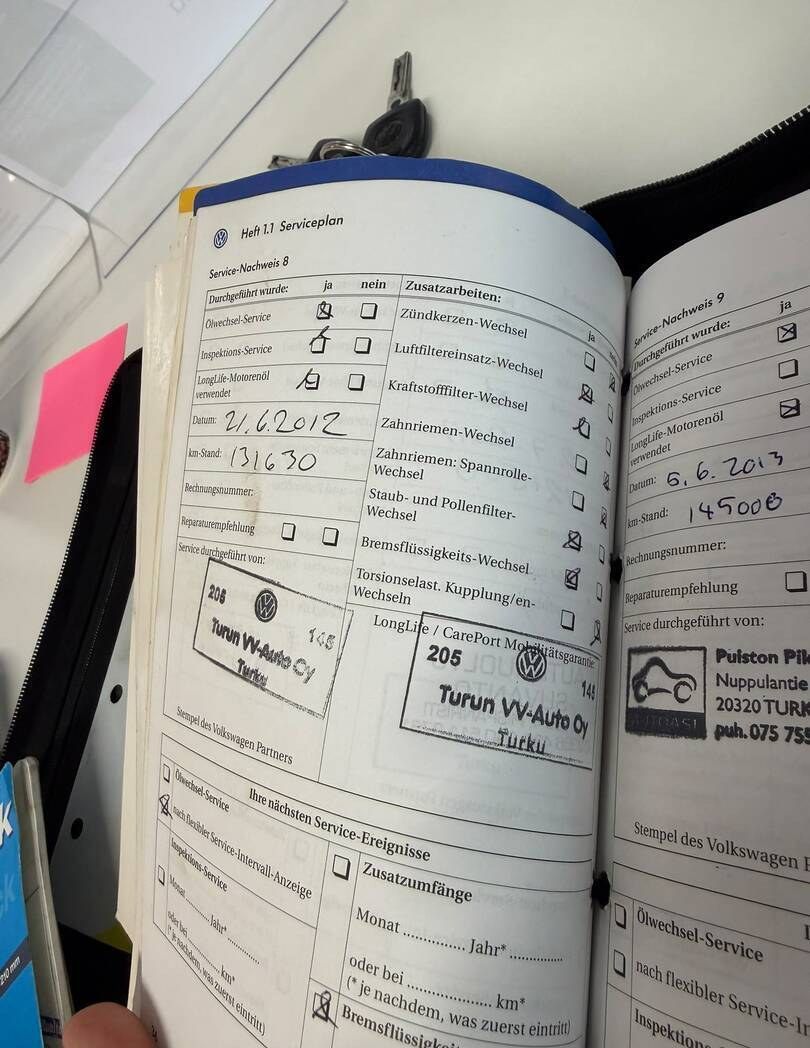 Heft 1.1 Serviceplan
Service-Nachweis 8
Durchgeführt wurde: ja nein
Ölwechsel-Service
Inspektions-Service
LongLife-Motorenöl
verwendet
Datum: 21.6.2012
km-Stand: 131630
Rechnungsnummer:
Reparaturempfehlung
Service durchgeführt von:
205 145
Turun VV-Auto Oy
Turku
Stempel des Volkswagen Partners
Zusatzarbeiten:
ja
Zündkerzen-Wechsel
Luftfiltereinsatz-Wechsel
Kraftstofffilter-Wechsel
Zahnriemen-Wechsel
Zahnriemen: Spannrolle-
Wechsel
Staub- und Pollenfilter-
Wechsel
Bremsflüssigkeits-Wechsel
Torsionselast. Kupplung/en-
Wechseln
LongLife / CarePort Mobilitätsgarantie
205 145
Turun VV-Auto Oy
Turku
Ihre nächsten Service-Ereignisse
Ölwechsel-Service
nach flexibler Service-Intervall-Anzeige
Inspektions-Service
Monat ........ Jahr* ............
oder bei .................. km*
(* je nachdem, was zuerst eintritt)
Zusatzumfänge
Monat .............. Jahr* ............
oder bei .................... km*
(* je nachdem, was zuerst eintritt)
Service-Nachweis 9
Durchgeführt wurde: ja
Ölwechsel-Service
Inspektions-Service
LongLife-Motorenöl
verwendet
Datum: 5.6.2013
km-Stand: 145008
Rechnungsnummer:
Reparaturempfehlung
Service durchgeführt von:
AUTOASI
Puiston
Nuppulantie
20320
puh. 075
Stempel des Volkswagen
Ölwechsel-Service
nach flexibler
210 mm